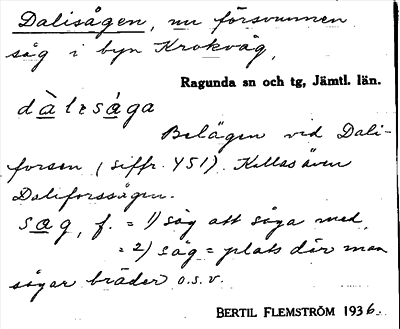 Dalisågen, nu försvunnen
såg i byn Krokvåg,
Ragunda sn och tg, Jämtl. län.
dàlısága
Belägen vid Dali-
forsen (siffr. 451). Kallas även
Daliforssågen.
sag, f. = 1) såg att såga med,
= 2) såg = plats där man
sågar bräder o.s.v.
BERTIL FLEMSTRÖM 1936.